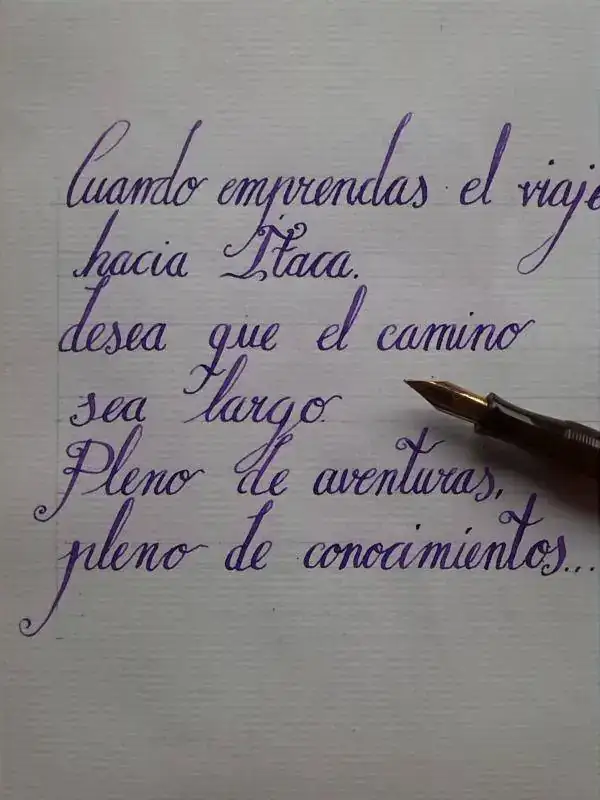 Cuando emprendas el viaje
hacia Itaca.
desea que el camino
sea largo.
Pleno de aventuras,
pleno de conocimientos...